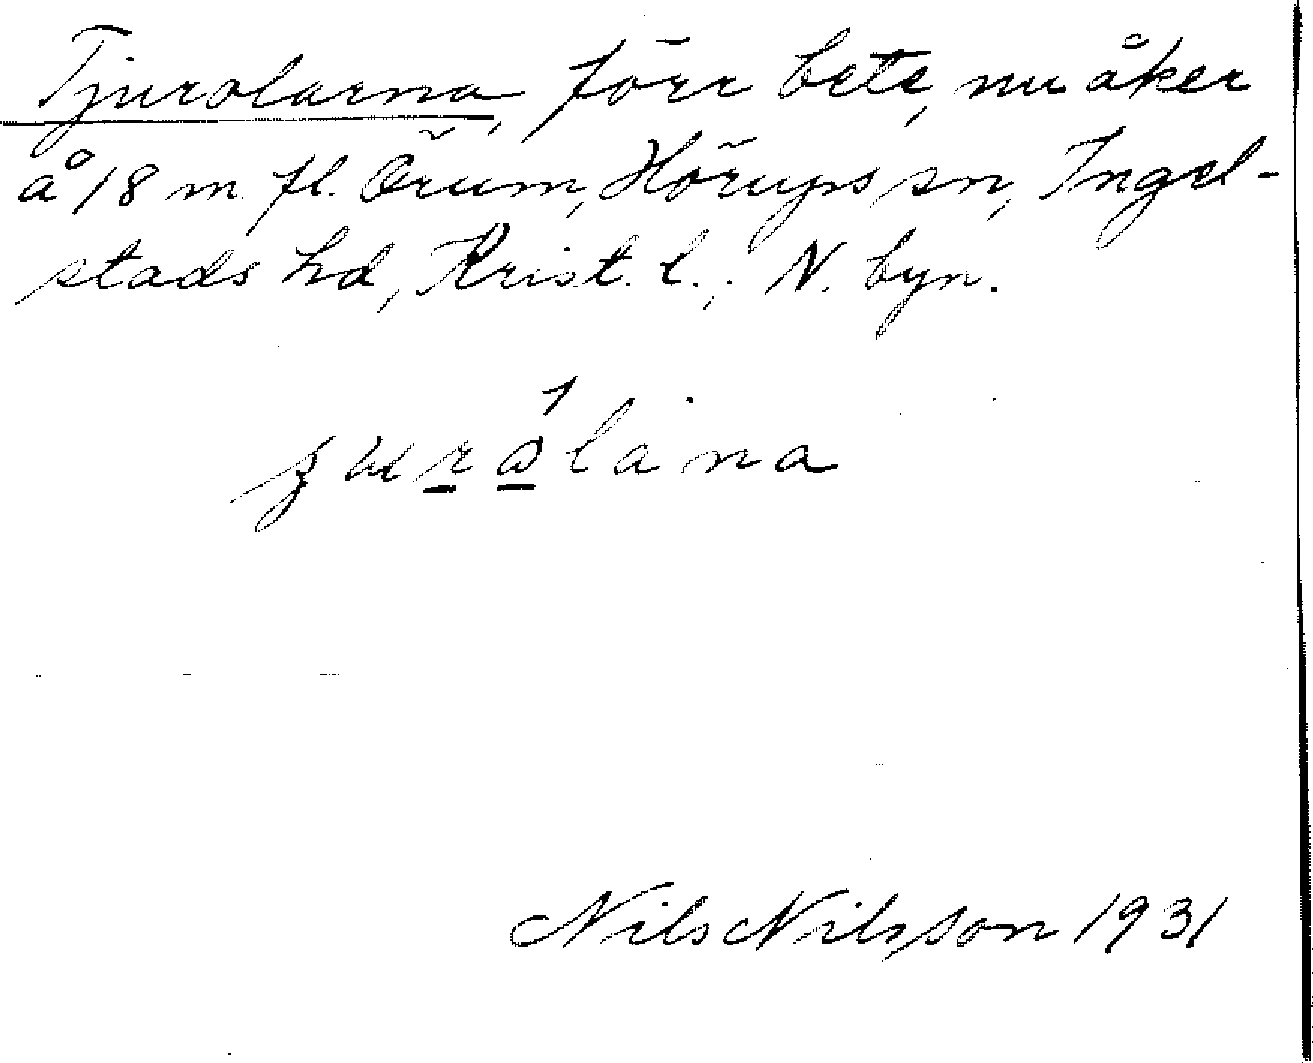 Tjurolarna, förr bete, nu åker
å 18 m. fl. Örum, Hörups sn, Ingel-
stads hd, Krist. l.; N. byn.
Nils Nilsson 1931